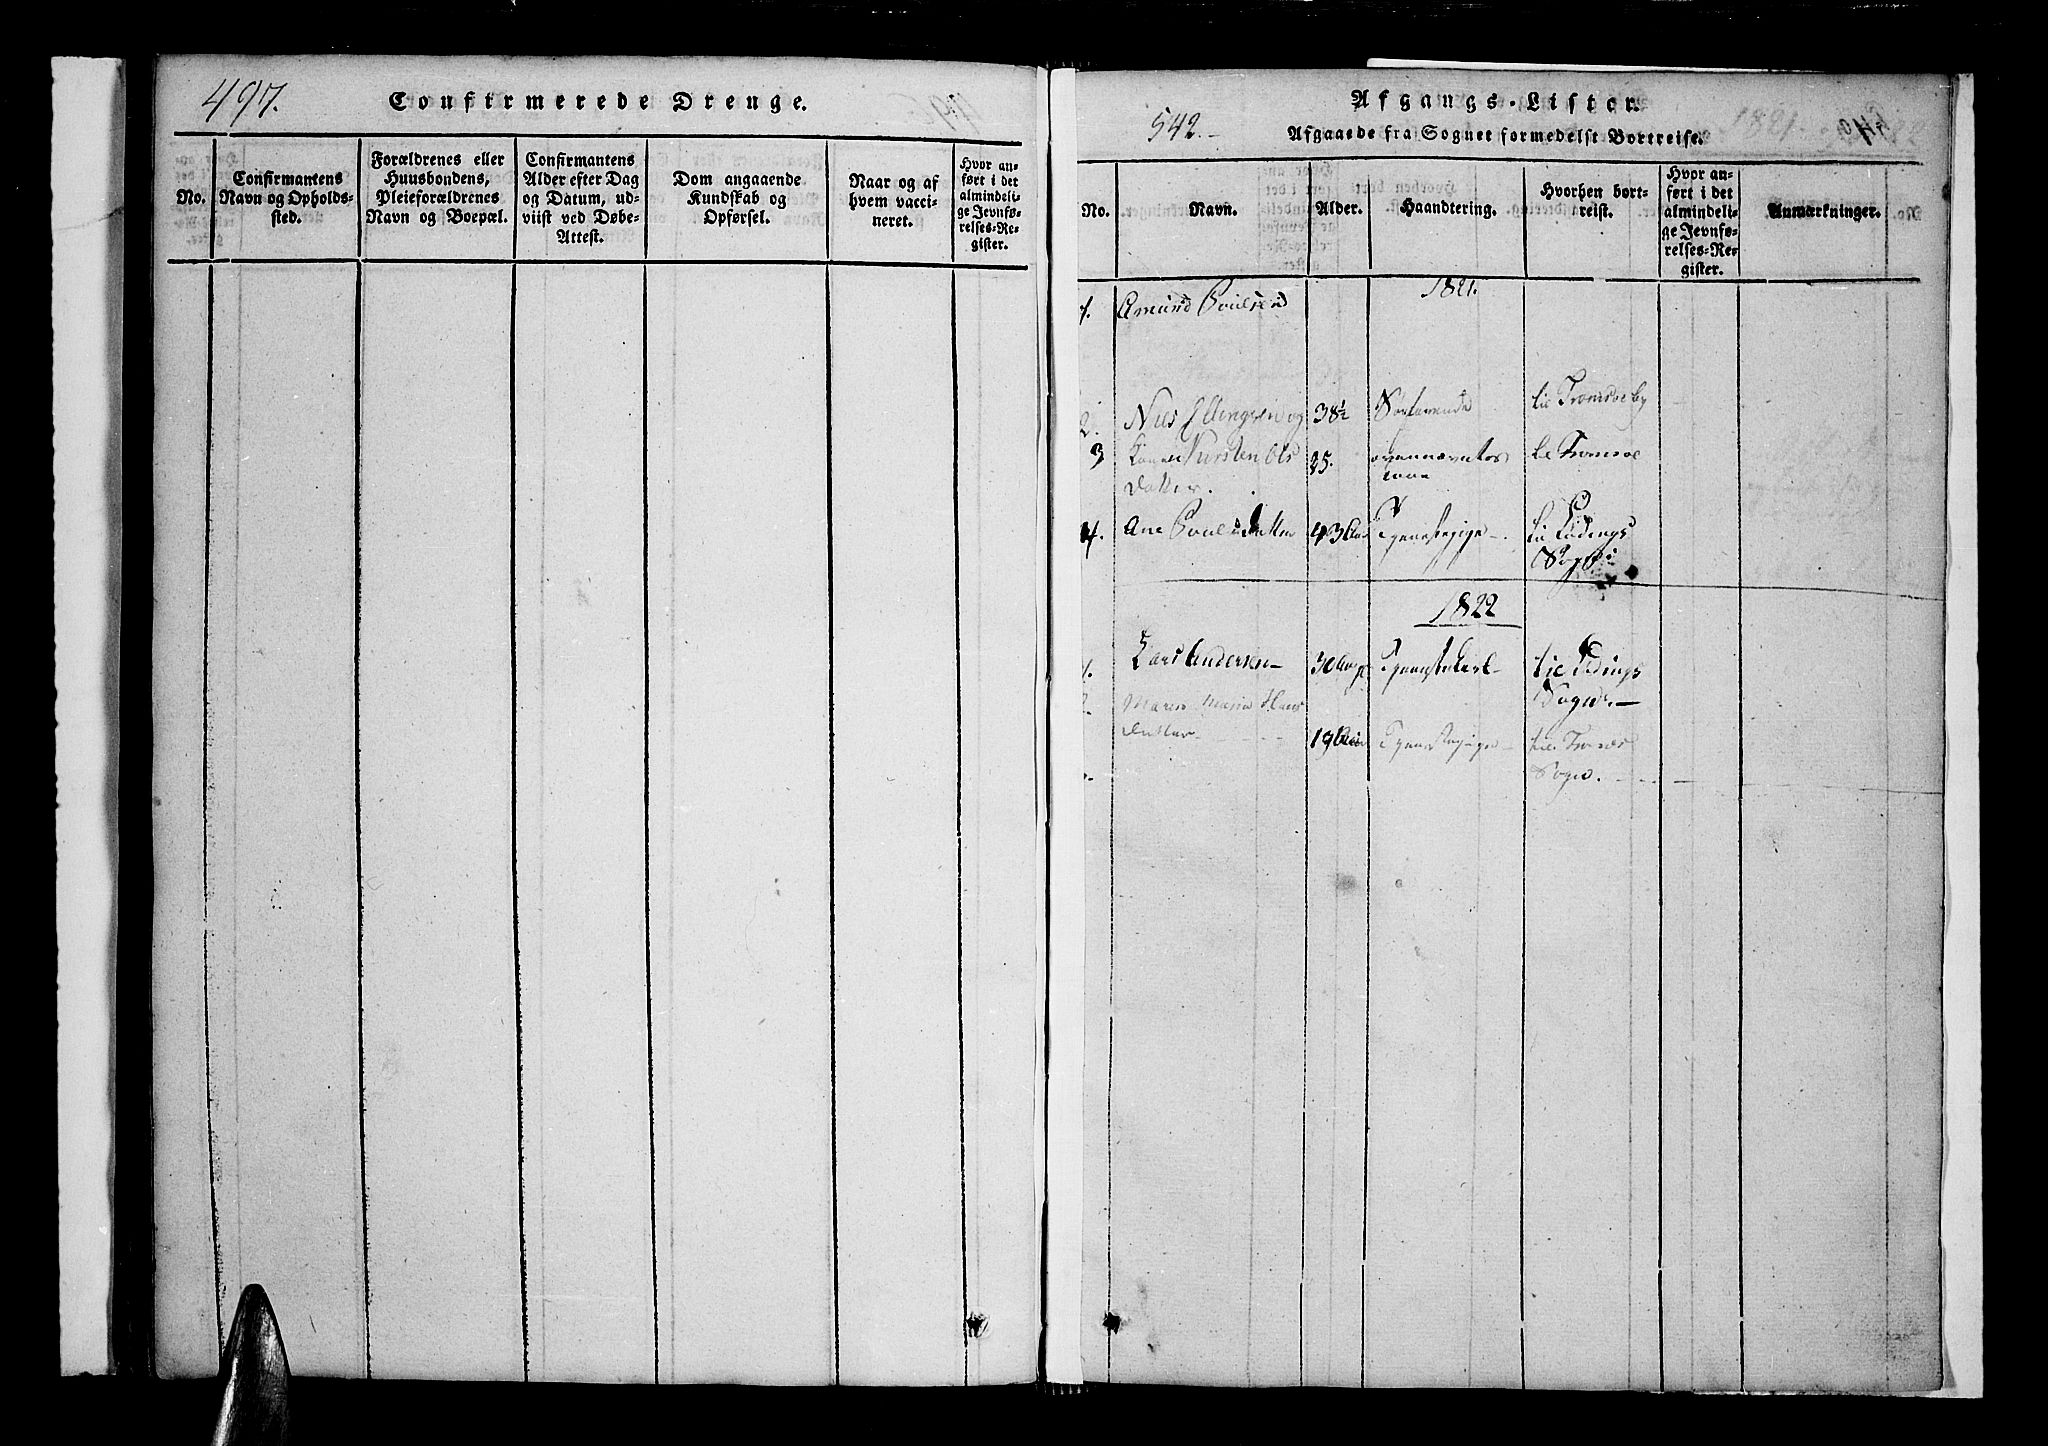 497.
Confirmerede Drenge.
No.
Confirmantens
Navn og Opholds-
sted.
Forældrenes eller
Huusbondens,
Pleieforældrenes
Navn og Boepæl.
Confirmantens
Alder efter Dag
og Datum, ud-
viist ved Døbe-
Attest.
Dom angaaende
Kundskab og
Opførsel.
Naar og af
hvem vacci-
neret.
Hvor an-
ført i det
almindeli-
ge Jevnfø-
relses-Re-
gister.
542.-
Afgangs-Lister.
Afgaaede fra Sognet formedelst Bortreise.
No.
Navn.
Alder.
Haandtering.
Hvorhen bort-
reist.
Hvor an-
ført i det
almindeli-
ge Jevnfø-
relses-Re-
gister.
Anmærkninger.
1821.
1. Amund Poulsen
2. Nils Ellingsen og 38½ til Tromsøe by
3 Kirsten Ols 25. til Tromsøe
Datter.
4. Ane Pouls Datter 43 Tjenestepige til Lødings
Sogn
1822
1. Lars Andersen 30 Tjenestekarl til Lødings
Sogn.
2. Maren Maria Hans
Datter 19 Tjenestepige til
Sogn.